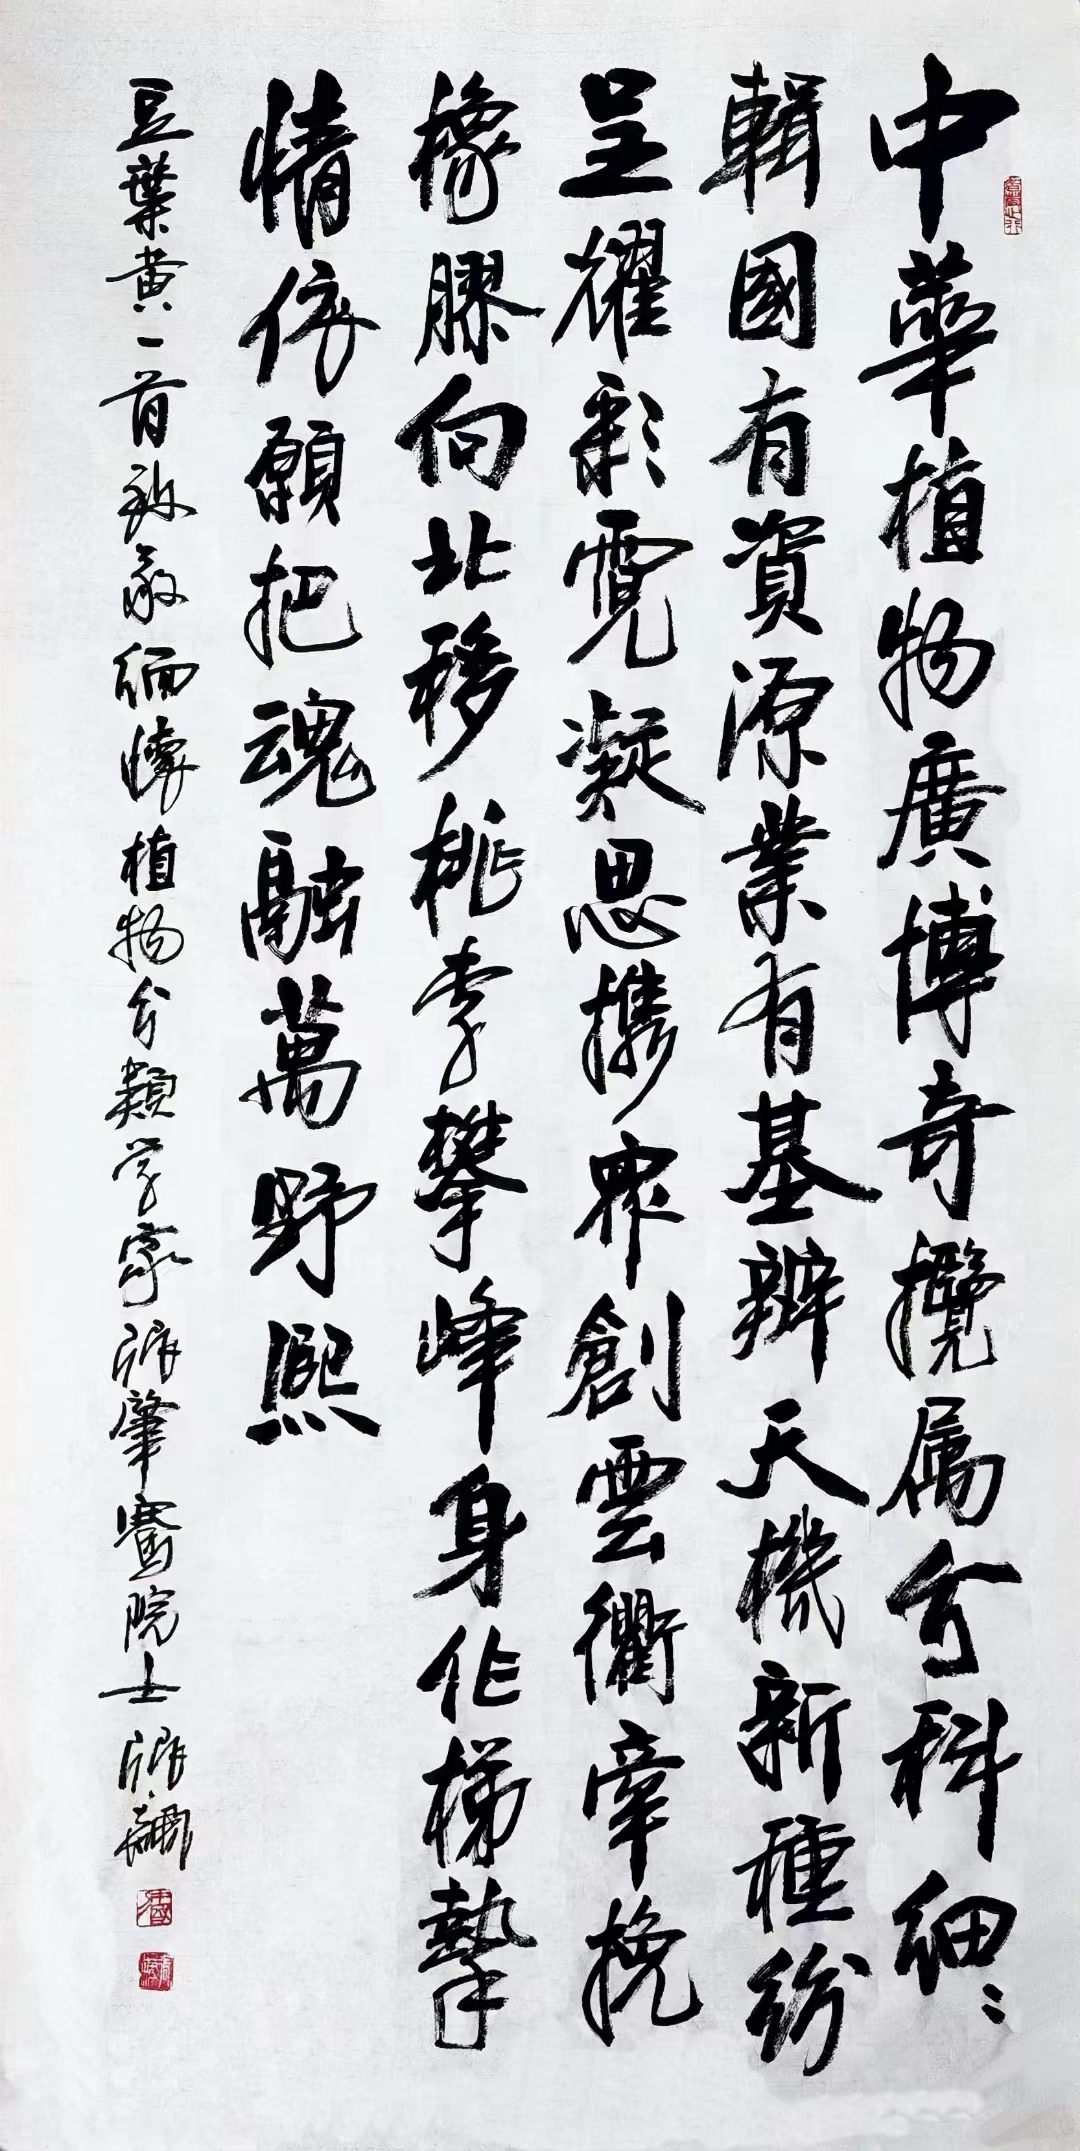 中華植物廣博奇攬属分科細細
輯國有資源業有基辨天機新種紛
呈耀彩霓凝思携眾創雲衢牽挽
橡膠向北移桃李攀峰身作梯摯
情依願把魂融萬野熙
豆葉黄一首致敬緬懷植物分類学家張肇騫院士張